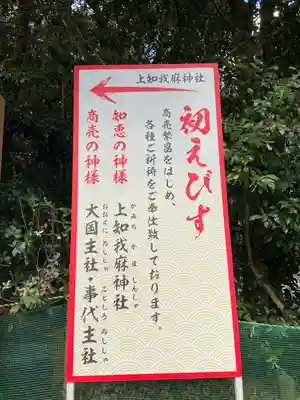 上知我麻神社
初えびす
商売繁昌をはじめ、
各種ご祈祷をご奉仕致しております。
知恵の神様
かみちかましんしゃ
上知我麻神社
商売の神様
おおくにぬししゃ ことしろぬししゃ
大国主社・事代主社